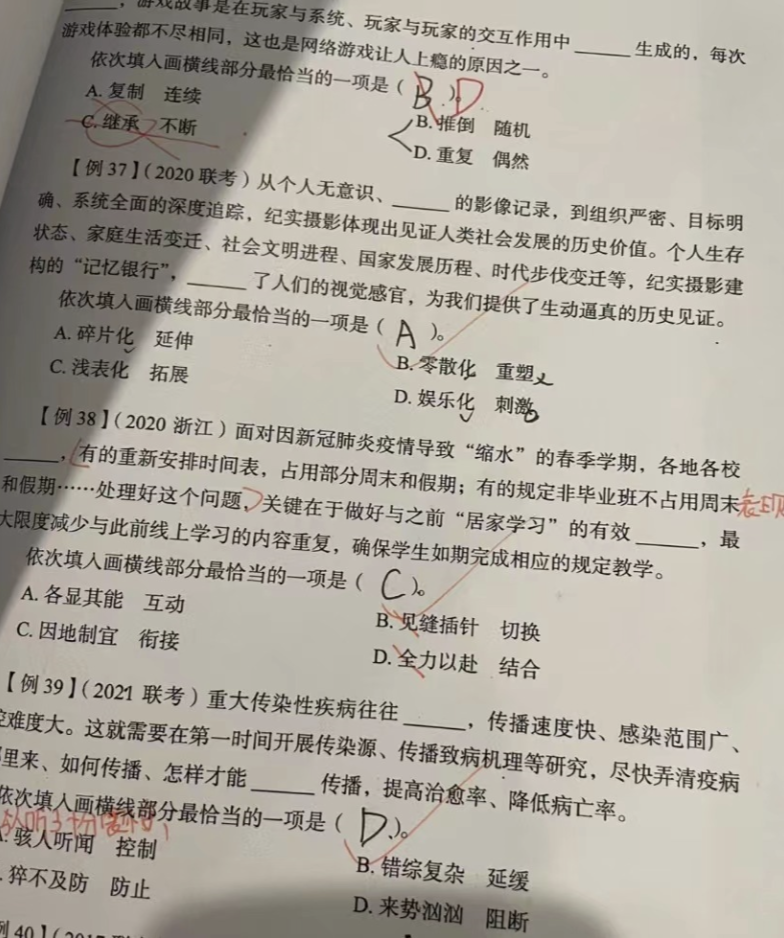 ______，游戏故事是在玩家与系统、玩家与玩家的交互作用中______生成的，每次
游戏体验都不尽相同，这也是网络游戏让人上瘾的原因之一。
依次填入画横线部分最恰当的一项是（ B ）。D
A. 复制 连续
B. 推倒 随机
C. 继承 不断
D. 重复 偶然
【例 37】（2020 联考）从个人无意识、______的影像记录，到组织严密、目标明
确、系统全面的深度追踪，纪实摄影体现出见证人类社会发展的历史价值。个人生存
状态、家庭生活变迁、社会文明进程、国家发展历程、时代步伐变迁等，纪实摄影建
构的“记忆银行”，______了人们的视觉感官，为我们提供了生动逼真的历史见证。
依次填入画横线部分最恰当的一项是（ A ）。
A. 碎片化 延伸
B. 零散化 重塑
C. 浅表化 拓展
D. 娱乐化 刺激
【例 38】（2020 浙江）面对因新冠肺炎疫情导致“缩水”的春季学期，各地各校
______，有的重新安排时间表，占用部分周末和假期；有的规定非毕业班不占用周末
和假期……处理好这个问题，关键在于做好与之前“居家学习”的有效______，最
大限度减少与此前线上学习的内容重复，确保学生如期完成相应的规定教学。
依次填入画横线部分最恰当的一项是（ C ）。
A. 各显其能 互动
B. 见缝插针 切换
C. 因地制宜 衔接
D. 全力以赴 结合
【例 39】（2021 联考）重大传染性疾病往往______，传播速度快、感染范围广、
难度大。这就需要在第一时间开展传染源、传播致病机理等研究，尽快弄清疫病
里来、如何传播、怎样才能______传播，提高治愈率、降低病亡率。
依次填入画横线部分最恰当的一项是（ D ）。
骇人听闻 控制
B. 错综复杂 延缓
猝不及防 防止
D. 来势汹汹 阻断
40】（